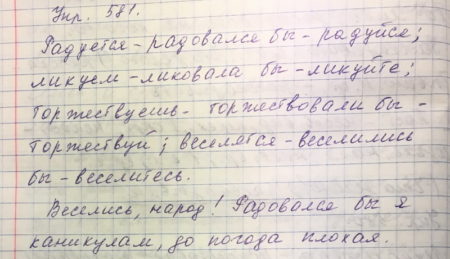 Упр. 581.
Радуется - радовался бы - радуйся;
ликуем - ликовала бы - ликуйте;
торжествуешь - торжествовали бы -
торжествуй; веселятся - веселились
бы - веселитесь.
Веселись, народ! Радовался бы я
каникулам, до погода плохая.